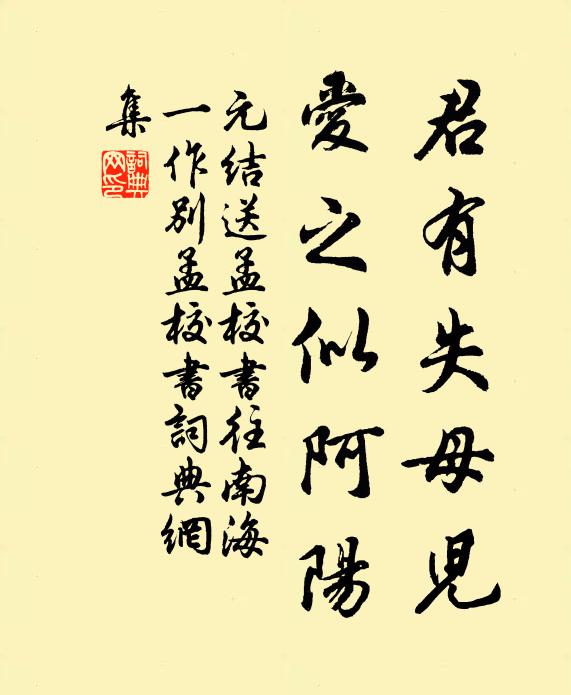 君有失毋兒
愛之似阿陽
元結送孟校書往南海
一作別孟校書詞典網
集
詞典
网印